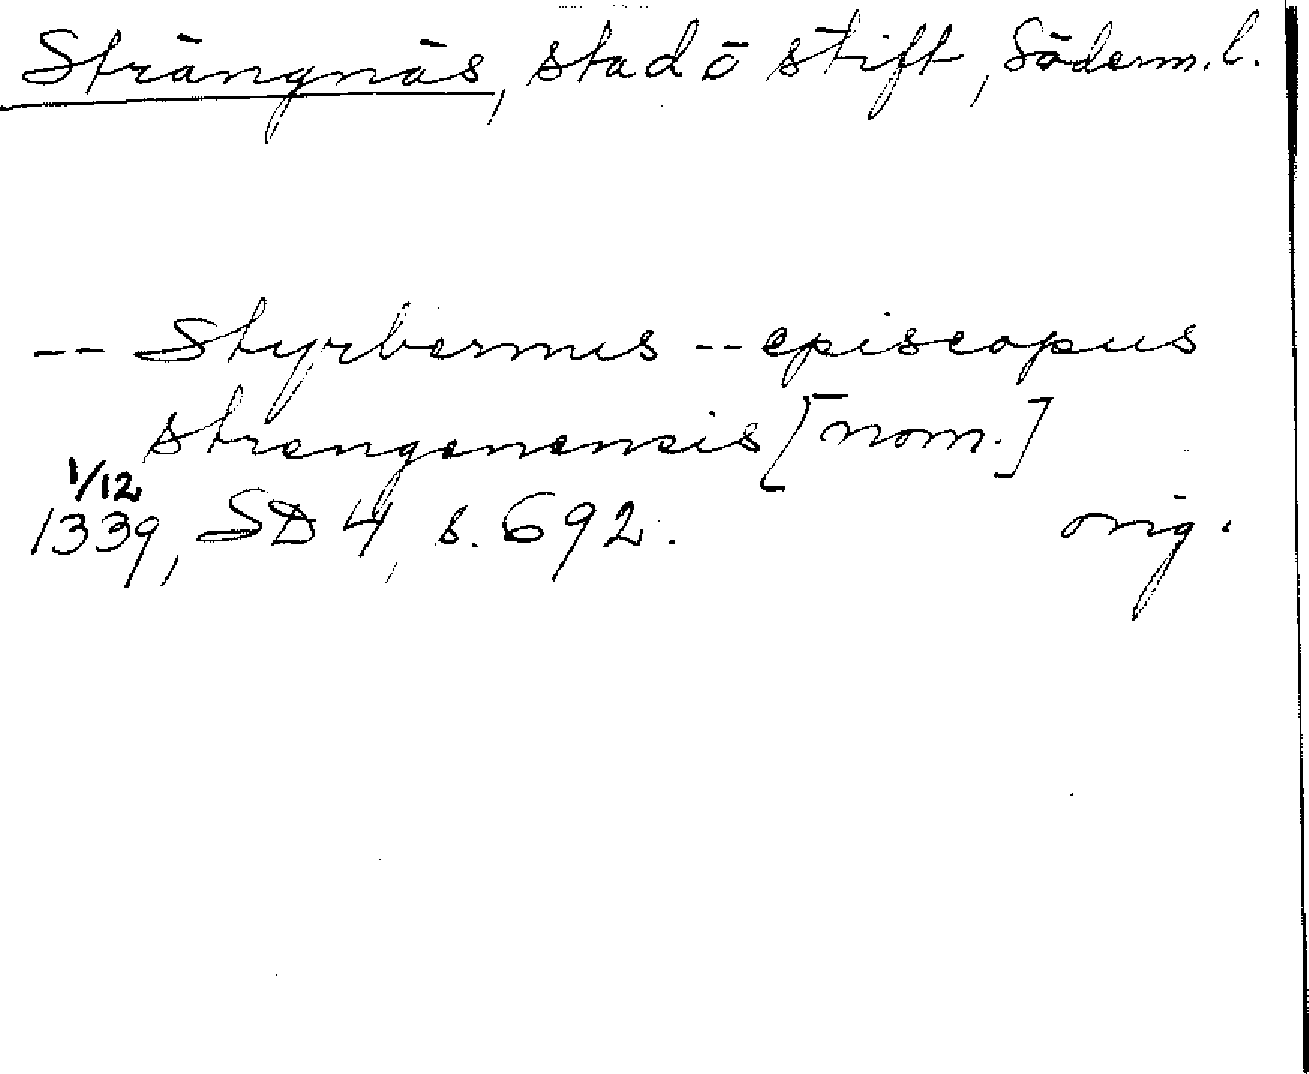 Strängnäs, stad ō stift, Söderm. l.
-- Styrbernus -- episcopus
strengenensis [nom.]
1/12
1339, SD 4, s. 692. orig.